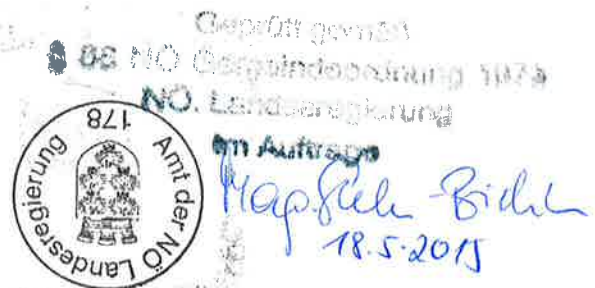 Geprüft gemäß
§ 88 NÖ Gemeindeordnung 1973
NÖ. Landesregierung
Im Auftrage
18.5.2015
Amt der NÖ Landesregierung
178